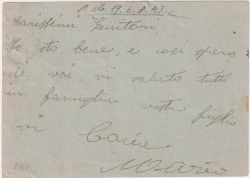 li 19.6.8.43
Carissimi Genitori,
Io sto bene, e così spero
di voi vi saluto tutti
in famiglia vostro figlio
vi Bacia
Mario